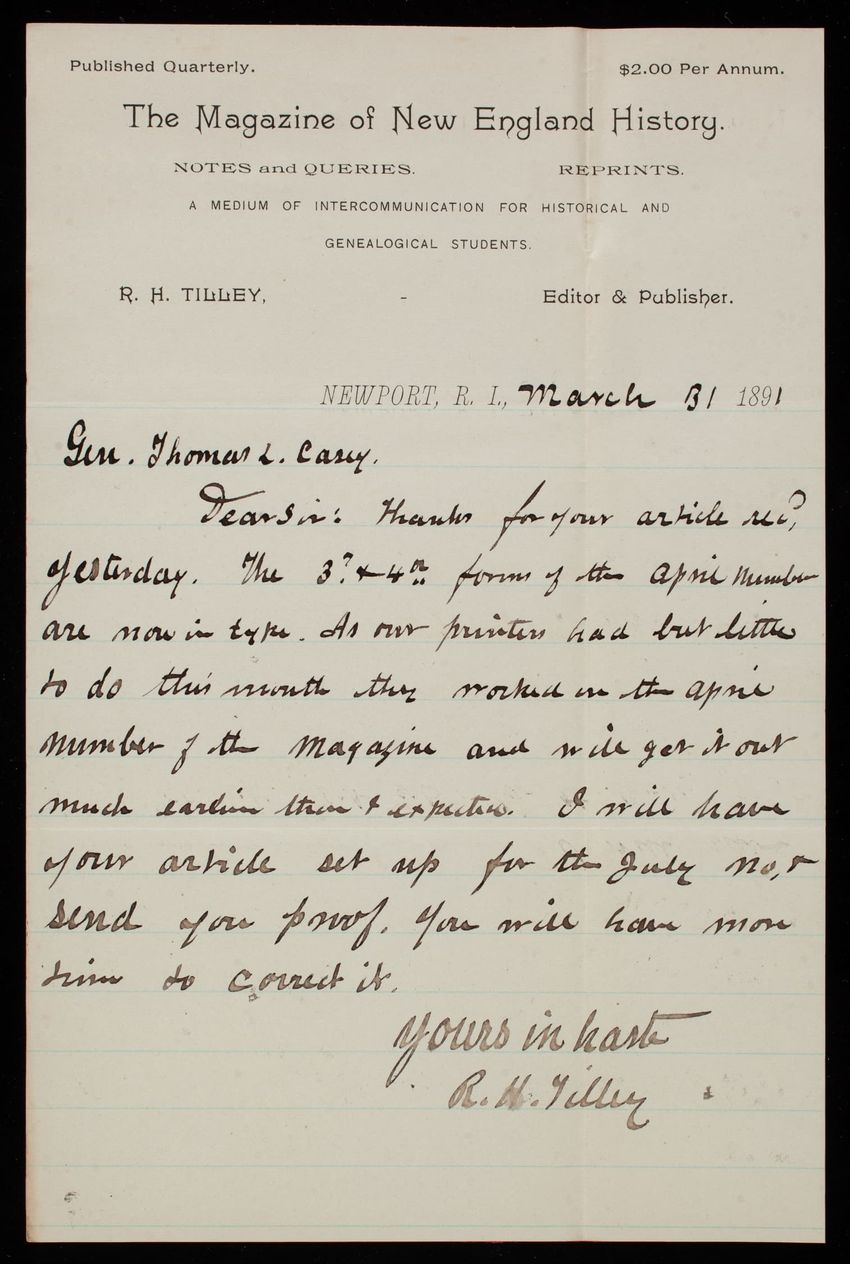 Published Quarterly. $2.00 Per Annum.
The Magazine of New England History.
NOTES and QUERIES. REPRINTS.
A MEDIUM OF INTERCOMMUNICATION FOR HISTORICAL AND
GENEALOGICAL STUDENTS.
R. H. TILLEY, - Editor & Publisher.
NEWPORT, R. I., March 31 1891
Gen. Thomas L. Casey.
Dear Sir: Thanks for your article rec'd,
yesterday. The 3d & 4th forms of the April number
are now in type. As our printers had but little
to do this month they worked on the April
number of the Magazine and will get it out
much earlier than I expected. I will have
your article set up for the July no, &
send you proof. You will have more
time to correct it.
Yours in haste
R. H. Tilley